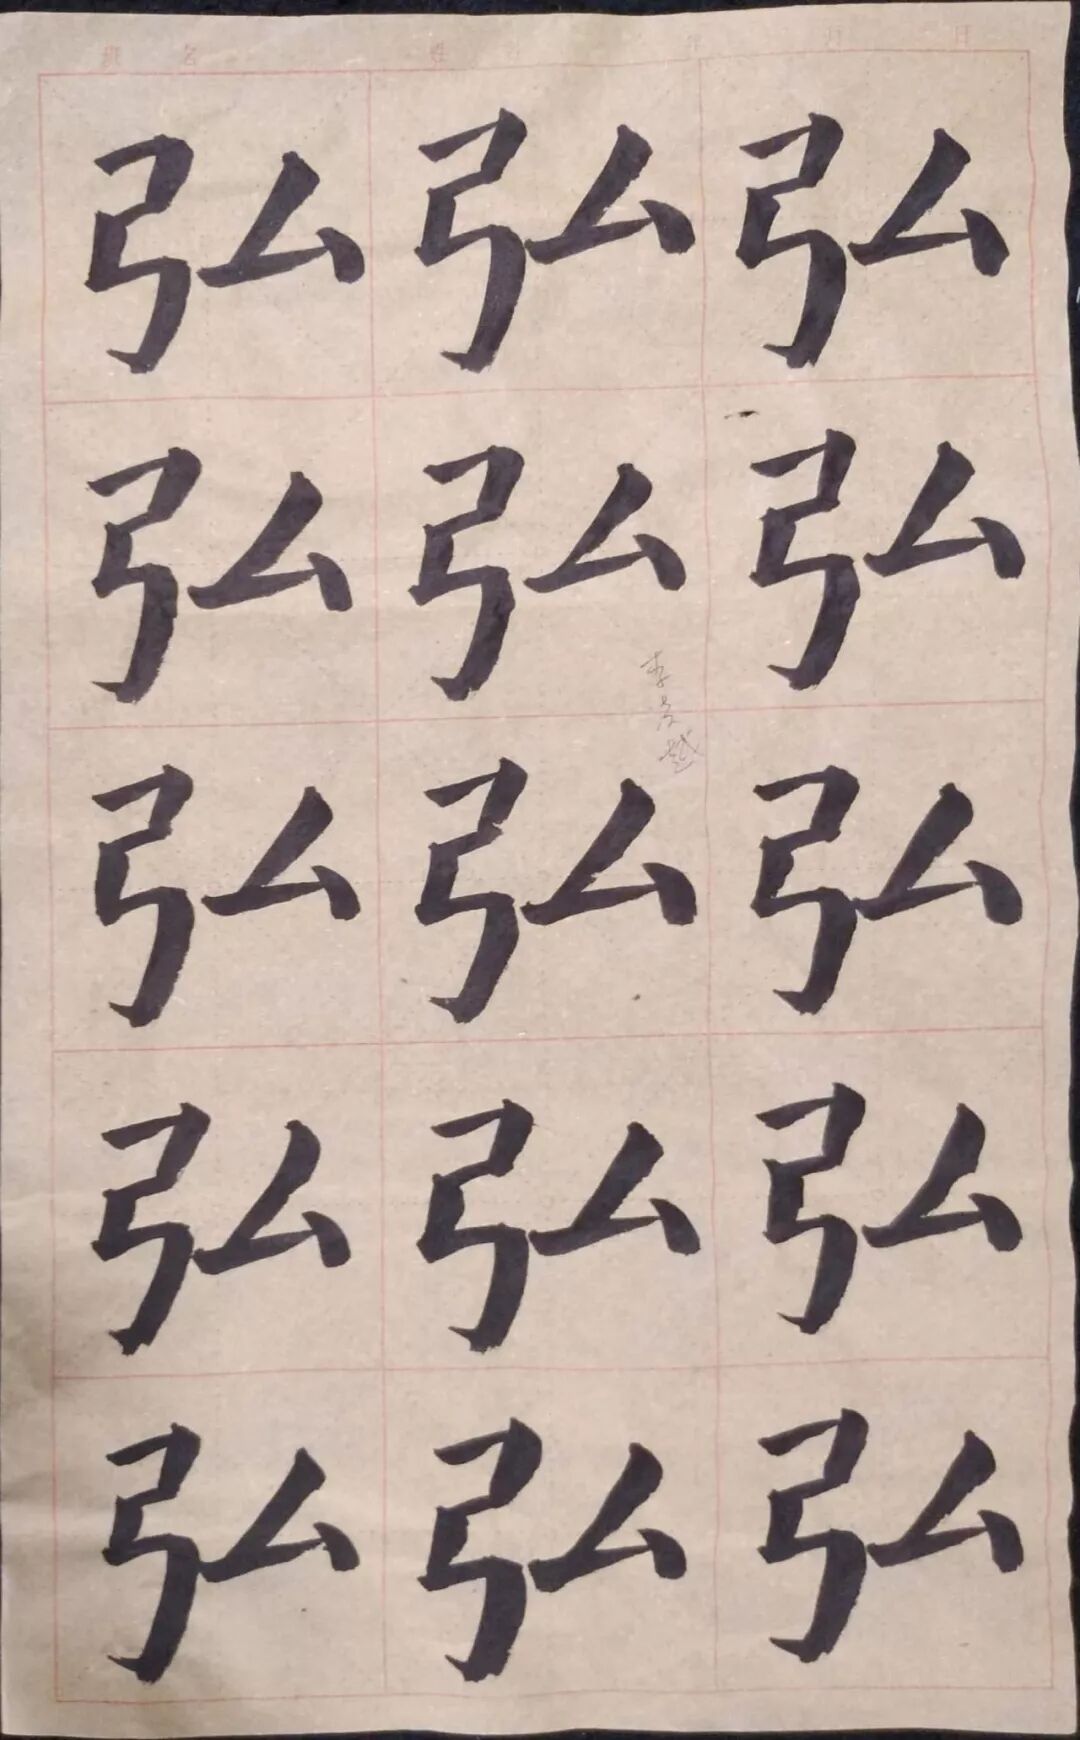 班 名 姓 年 月 日
弘 弘 弘
弘 弘 弘
弘 弘 弘
弘 弘 弘
弘 弘 弘